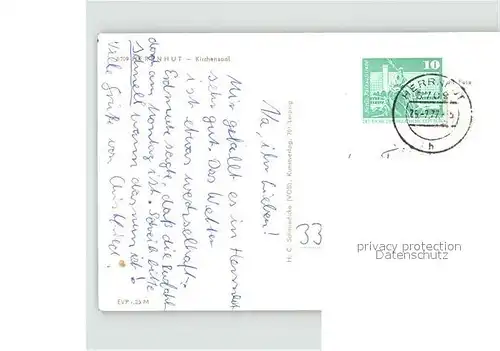 8709 HERRNHUT — Kirchensaal
Na, ihr Lieben!
Mir gefällt es in Herrnhut
sehr gut. Das Wetter
ist etwas wechselhaft.
Erdmute sagte, daß die
doch am Montag ist. Schreib bitte
schnell wann das nun ist!
Viele Grüße von
EVP 0,25 M
H. C. Schmiedicke (VOB), Kunstverlag, 701 Leipzig
33
10
HERRNHUT
8709
privacy protection
Datenschutz